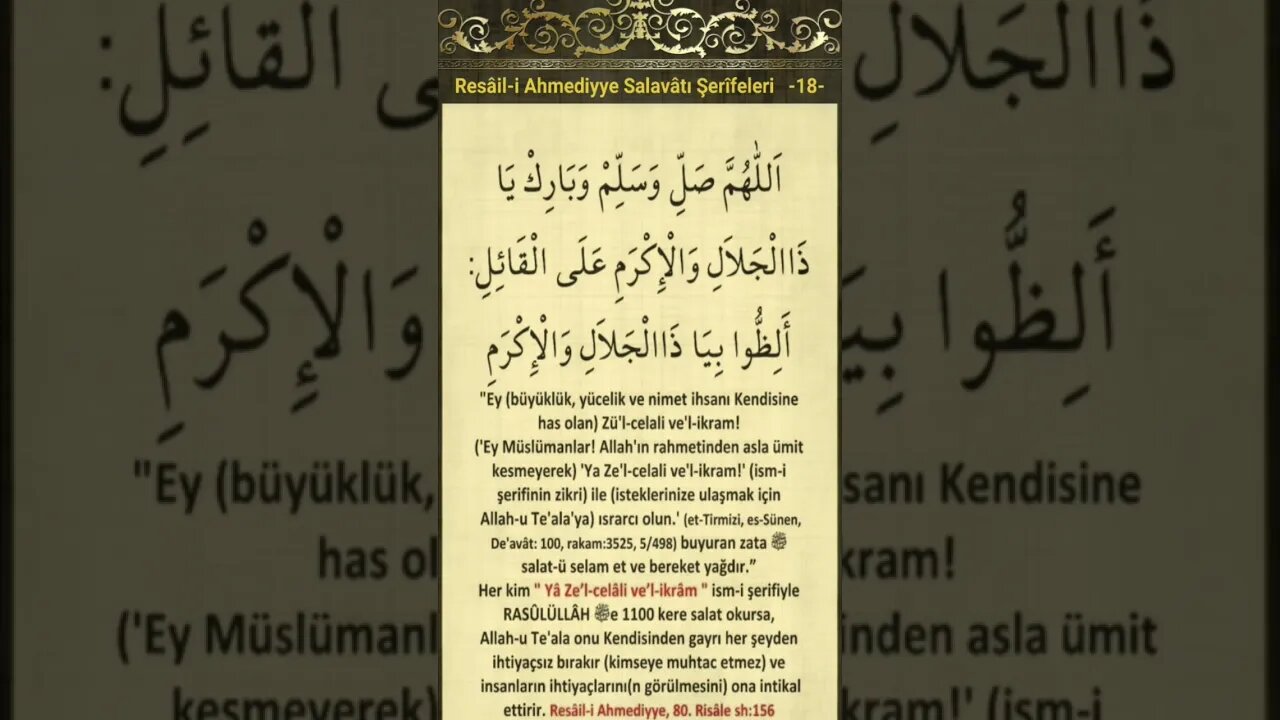 Resâil-i Ahmediyye Salavâtı Şerîfeleri -18-
اَللّٰهُمَّ صَلِّ وَسَلِّمْ وَبَارِكْ يَا
ذَاالْجَلاَلِ وَالْإِكْرَمِ عَلَى الْقَائِلِ:
أَلِظُّوا بِيَا ذَاالْجَلاَلِ وَالْإِكْرَمِ
"Ey (büyüklük, yücelik ve nimet ihsanı Kendisine
has olan) Zü'l-celali ve'l-ikram!
('Ey Müslümanlar! Allah'ın rahmetinden asla ümit
kesmeyerek) 'Ya Ze'l-celali ve'l-ikram!' (ism-i
şerifinin zikri) ile (isteklerinize ulaşmak için
Allah-u Te'ala'ya) ısrarcı olun.' (et-Tirmizi, es-Sünen,
De'avât: 100, rakam:3525, 5/498) buyuran zata ﷺ
salat-ü selam et ve bereket yağdır.”
Her kim " Yâ Ze’l-celâli ve’l-ikrâm " ism-i şerifiyle
RASÛLÜLLÂH ﷺe 1100 kere salat okursa,
Allah-u Te'ala onu Kendisinden gayrı her şeyden
ihtiyaçsız bırakır (kimseye muhtac etmez) ve
insanların ihtiyaçlarını(n görülmesini) ona intikal
ettirir. Resâil-i Ahmediyye, 80. Risâle sh:156